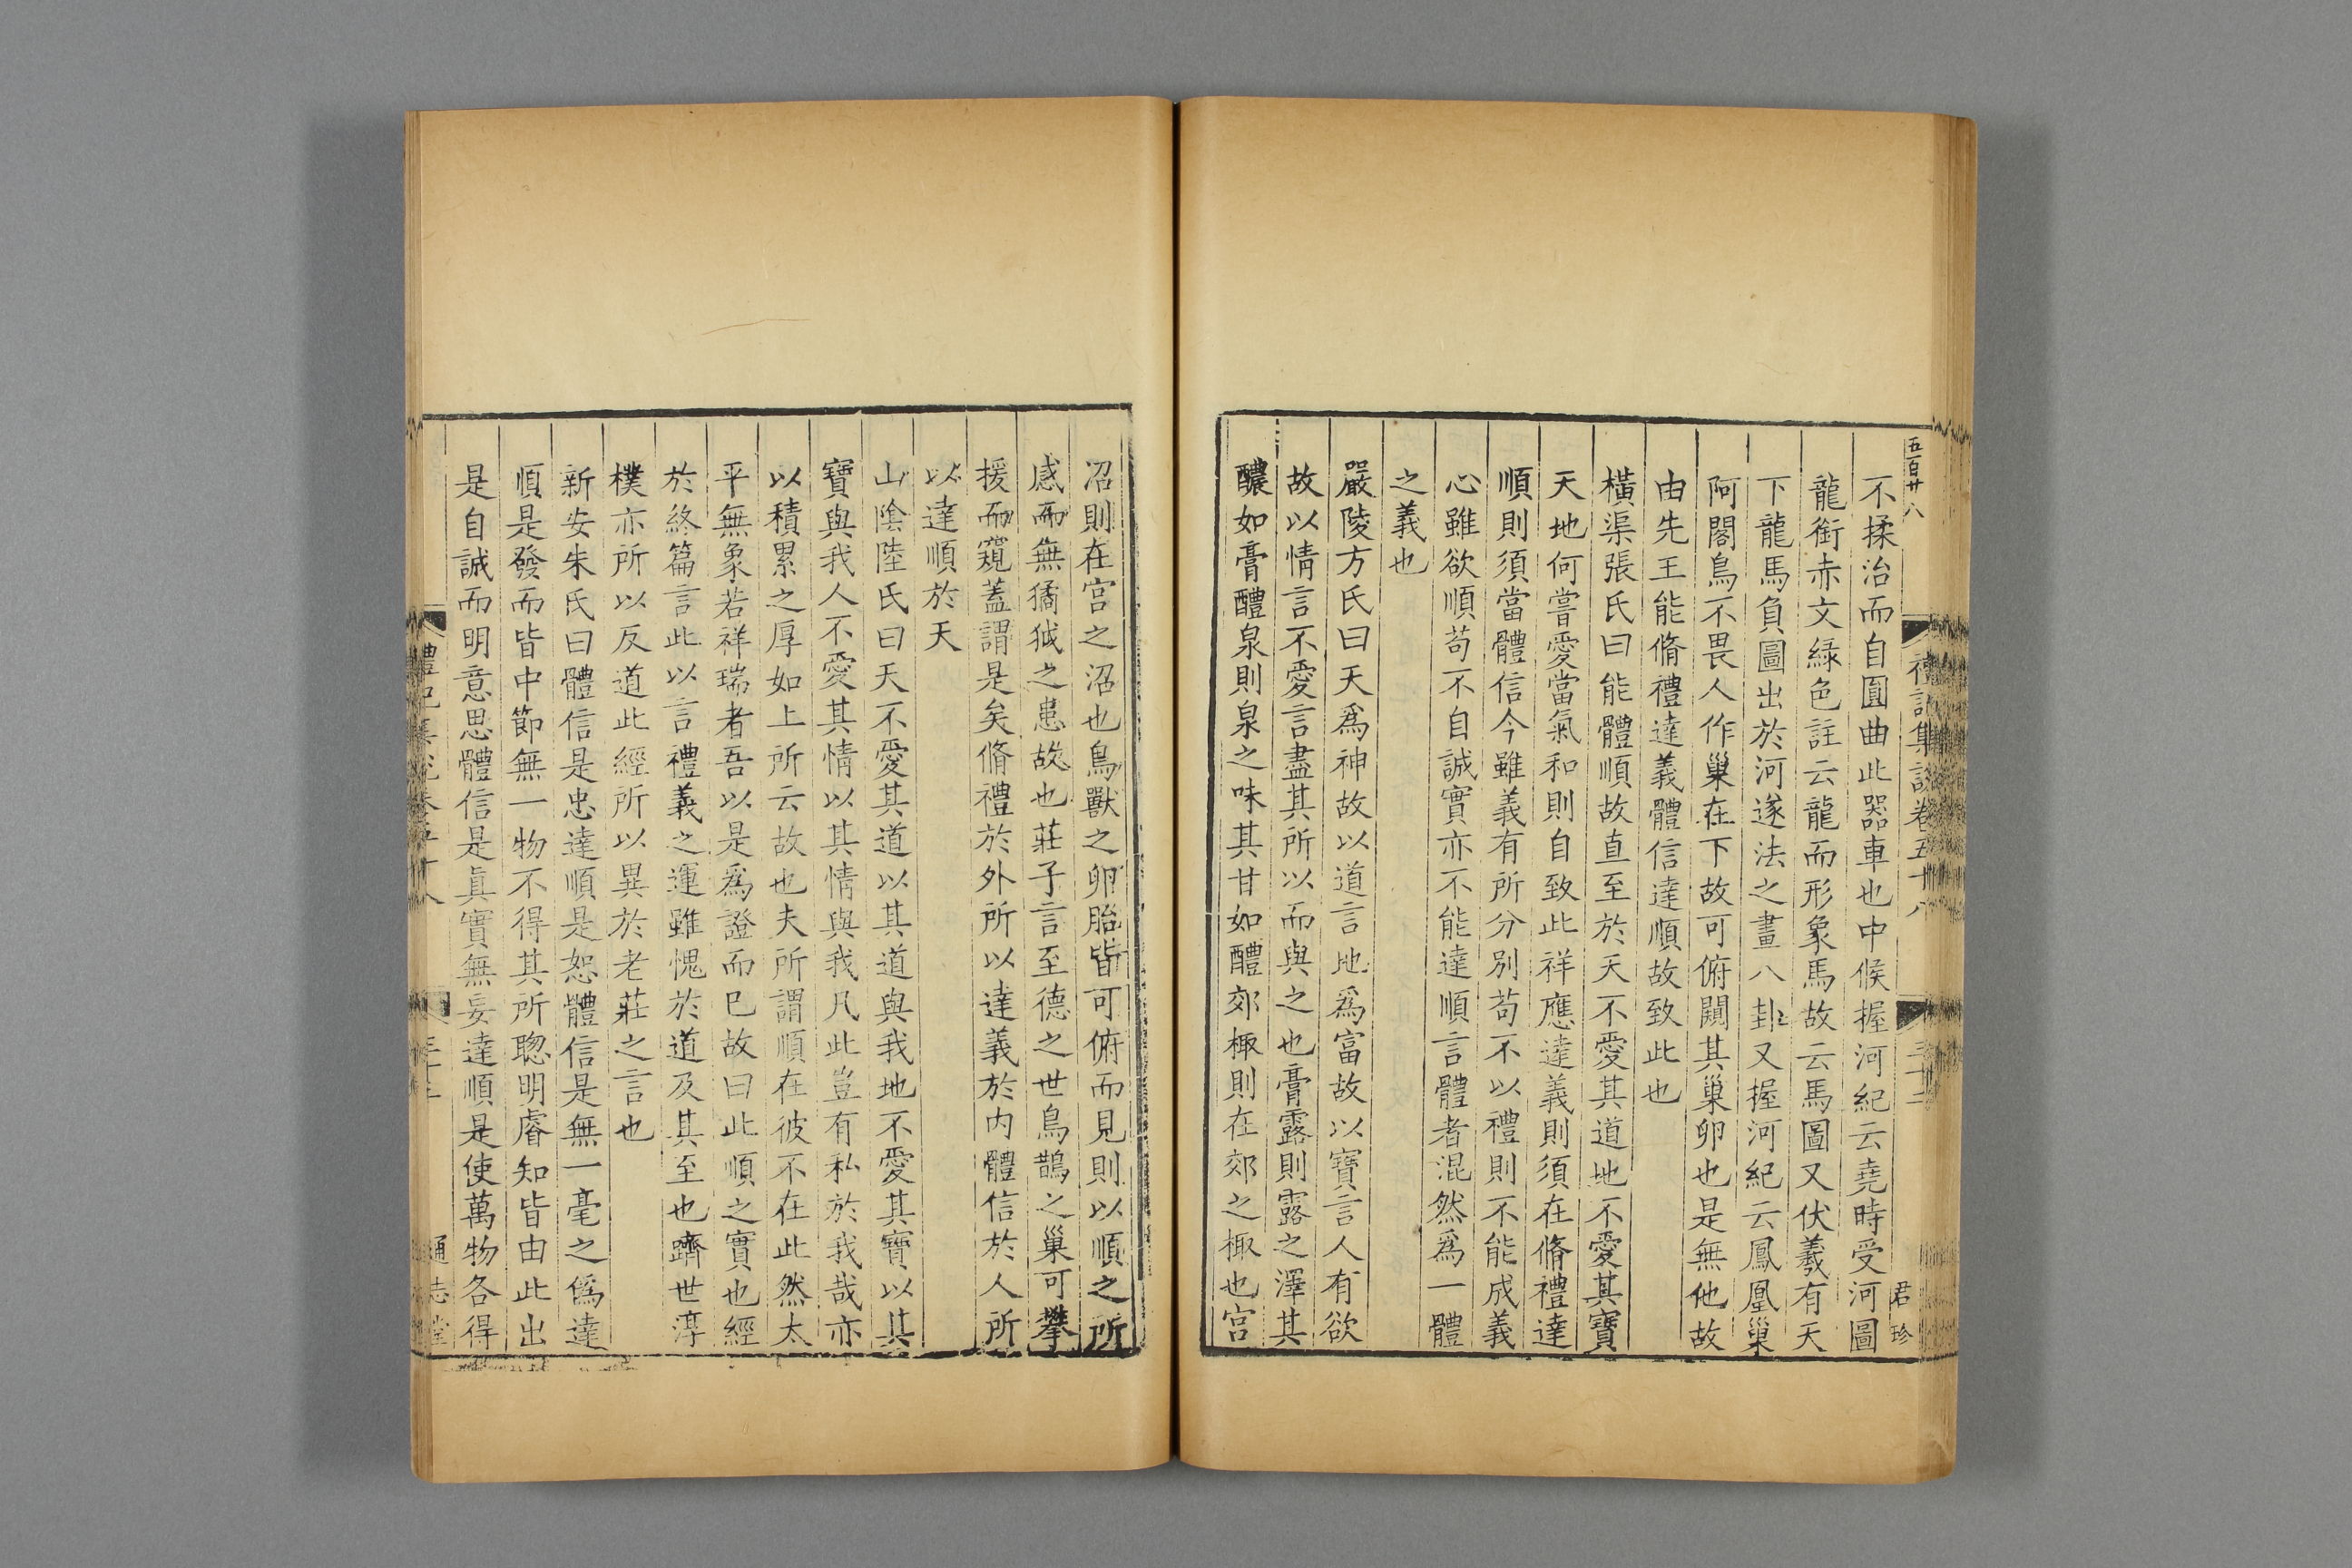 五百廿八
禮記集說卷五十八
三十二
君珍
不揉治而自圓曲此器車也中候握河紀云堯時受河圖
龍銜赤文綠色註云龍而形象馬故云馬圖又伏羲有天
下龍馬負圖出於河遂法之畫八卦又握河紀云鳳凰巢
阿閣鳥不畏人作巢在下故可俯闚其巢卵也是無他故
由先王能脩禮達義體信達順故致此也
橫渠張氏曰能體順故直至於天不愛其道地不愛其寶
天地何嘗愛當氣和則自致此祥應達義則須在脩禮達
順則須當體信今雖義有所分別苟不以禮則不能成義
心雖欲順苟不自誠實亦不能達順言體者混然爲一體
之義也
嚴陵方氏曰天爲神故以道言地爲富故以寶言人有欲
故以情言不愛言盡其所以而與之也膏露則露之澤其
醲如膏醴泉則泉之味其甘如醴郊棷則在郊之棷也宮
沼則在宮之沼也鳥獸之卵胎皆可俯而見則以順之所
感而無獝狘之患故也莊子言至德之世鳥鵲之巢可攀
援而窺蓋謂是矣脩禮於外所以達義於内體信於人所
以達順於天
山陰陸氏曰天不愛其道以其道與我地不愛其寶以其
寶與我人不愛其情以其情與我凡此豈有私於我哉亦
以積累之厚如上所云故也夫所謂順在彼不在此然太
平無象若祥瑞者吾以是爲證而已故曰此順之實也經
於終篇言此以言禮義之運雖愧於道及其至也躋世淳
樸亦所以反道此經所以異於老莊之言也
新安朱氏曰體信是忠達順是恕體信是無一毫之僞達
順是發而皆中節無一物不得其所聰明睿知皆由此出
是自誠而明意思體信是眞實無妄達順是使萬物各得
禮記集說卷五十八
三十三
通志堂